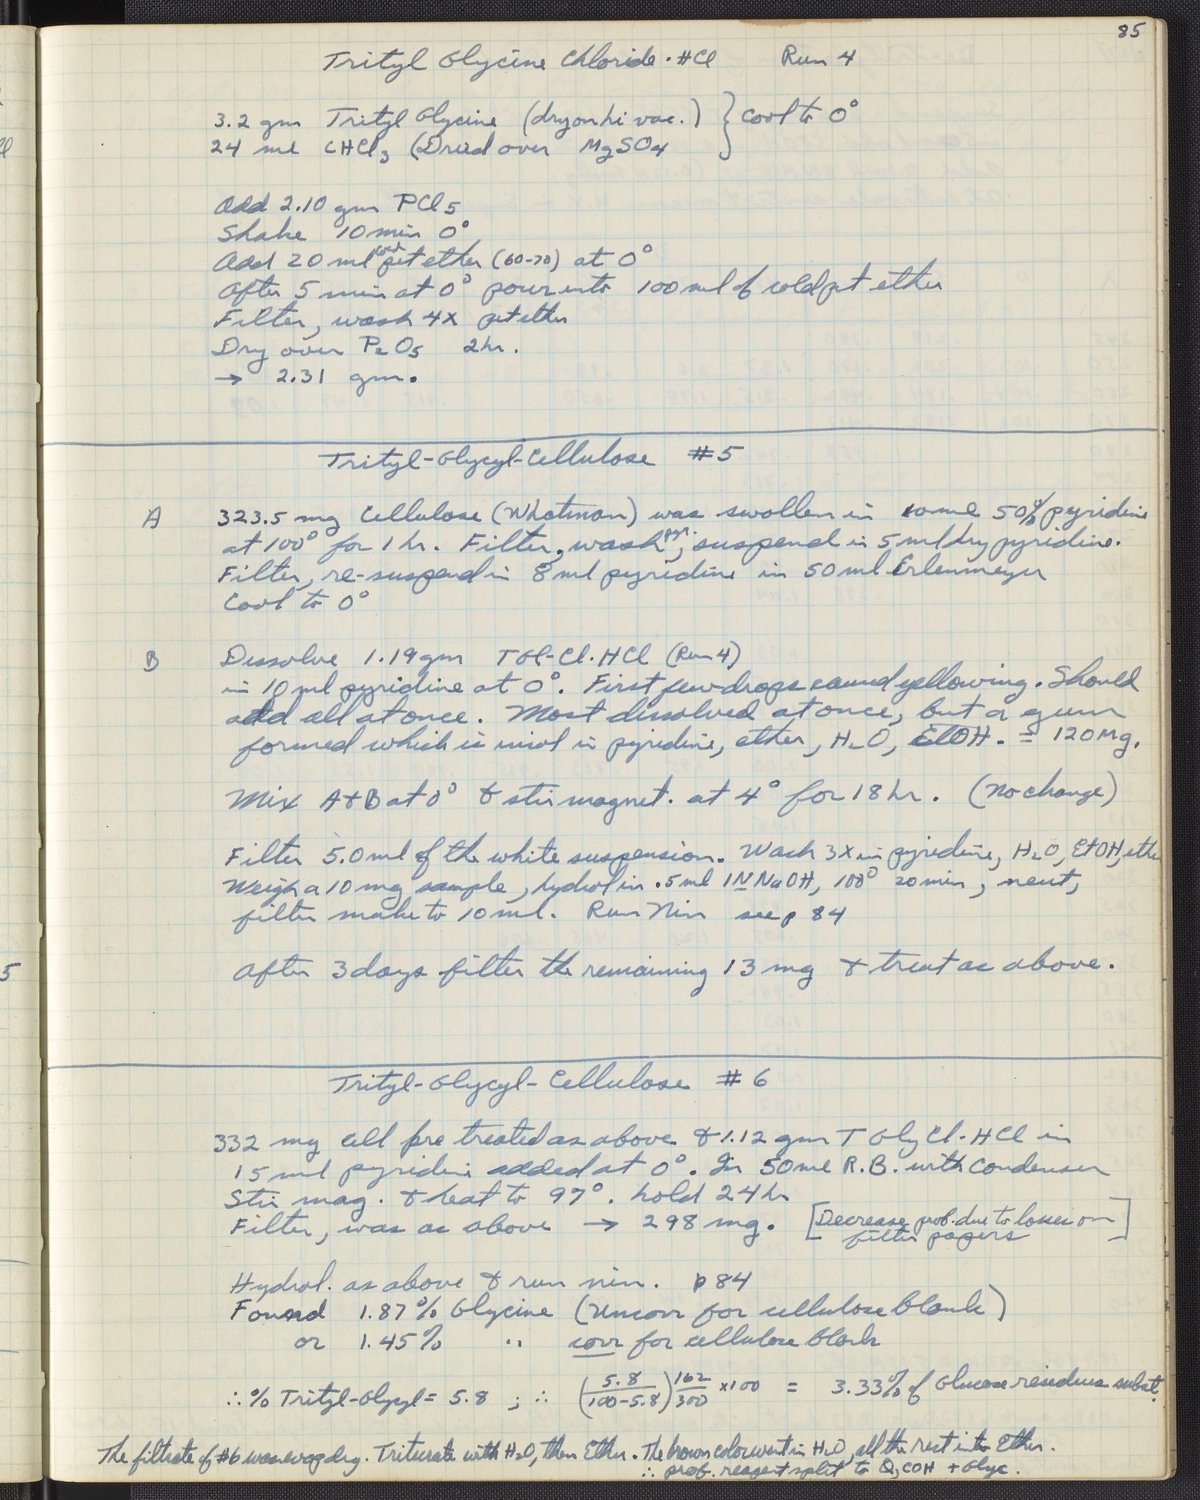 85
Trityl Glycine Chloride · HCl Run 4
3.2 gm Trityl Glycine (dry on hi vac.) } cool to 0°
24 ml CHCl3 (Dried over MgSO4
Add 2.10 gm PCl5
Shake 10 min 0°
Add 20 ml cold pet ether (60-70) at 0°
After 5 min at 0° pour into 100 ml of cold pet ether
Filter, wash 4x pet ether
Dry over P2O5 2 hr.
→ 2.31 gm.
Trityl-Glycyl-Cellulose #5
A 323.5 mg Cellulose (Whatman) was swollen in 10 ml 50% pyridine
at 100° for 1 hr. Filter, wash pyr., suspend in 5 ml dry pyridine.
Filter, re-suspend in 8 ml pyridine in 50 ml Erlenmeyer
Cool to 0°
B Dissolve 1.19 gm TGl-Cl·HCl (Run 4)
in 10 ml pyridine at 0°. First few drops caused yellowing. Should
add all at once. Most dissolved at once, but a gum
formed which is insol in pyridine, ether, H2O, EtOH. = 120 mg.
Mix A+B at 0° & stir magnet. at 4° for 18 hr. (No change)
Filter 5.0 ml of the white suspension. Wash 3x in pyridine, H2O, EtOH, ether
Weigh a 10 mg sample, hydrol in .5 ml 1N NaOH, 100° 20 min, neut,
filter make to 10 ml. Run Nin see p 84
After 3 days filter the remaining 13 mg & treat as above.
5
Trityl-Glycyl-Cellulose #6
332 mg cell pre treated as above & 1.12 gm T Gly Cl·HCl in
15 ml pyridine added at 0°. In 50 ml R.B. with condenser
Stir mag. & heat to 97°. hold 24 hr
Filter, was as above → 298 mg. [Decrease prob. due to losses on
filter papers]
Hydrol. as above & run nin. p 84
Found 1.87% Glycine (Uncorr for cellulose blank)
or 1.45% " corr for cellulose blank
∴ % Trityl-Glycyl = 5.8 ; ∴ (5.8/100-5.8) 162/300 x100 = 3.33% of Glucose residues subst.
The filtrate of #6 was evap dry. Triturate with H2O, then Ether. The brown color went in H2O, all the rest into Ether.
∴ prob. reagent split to Q3COH + Glyc.